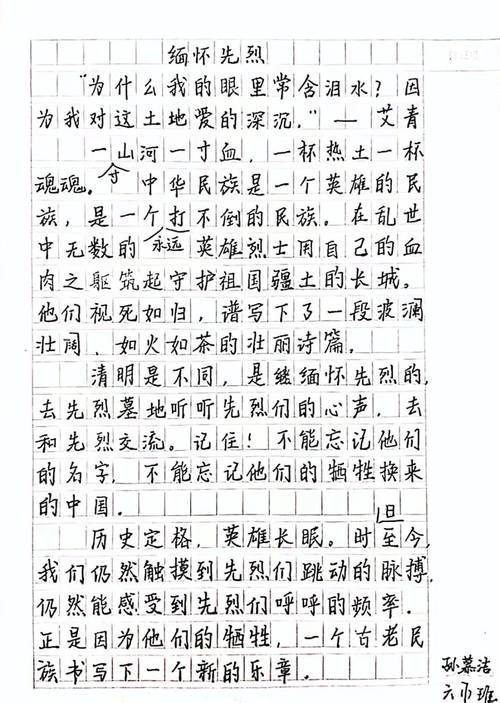 缅怀先烈
“为什么我的眼里常含泪水？因
为我对这土地爱的深沉。”—艾青
一山河一寸血，一杯热土一杯
魂魂。中华民族是一个英雄的民
族，是一个打不倒的民族。在乱世
中无数的永远英雄烈士用自己的血
肉之躯筑起守护祖国疆土的长城。
他们视死如归，谱写下了一段波澜
壮阔、如火如荼的壮丽诗篇。
清明是不同，是缅怀先烈的，
去先烈墓地听听先烈们的心声，去
和先烈交流。记住！不能忘记他们
的名字，不能忘记他们的牺牲换来
的中国。
历史定格，英雄长眠。时至今
日
我们仍然触摸到先烈们跳动的脉搏，
仍然能感受到先烈们呼呼的频率。
正是因为他们的牺牲，一个古老民
族书写下一个新的乐章。
孙慕洁